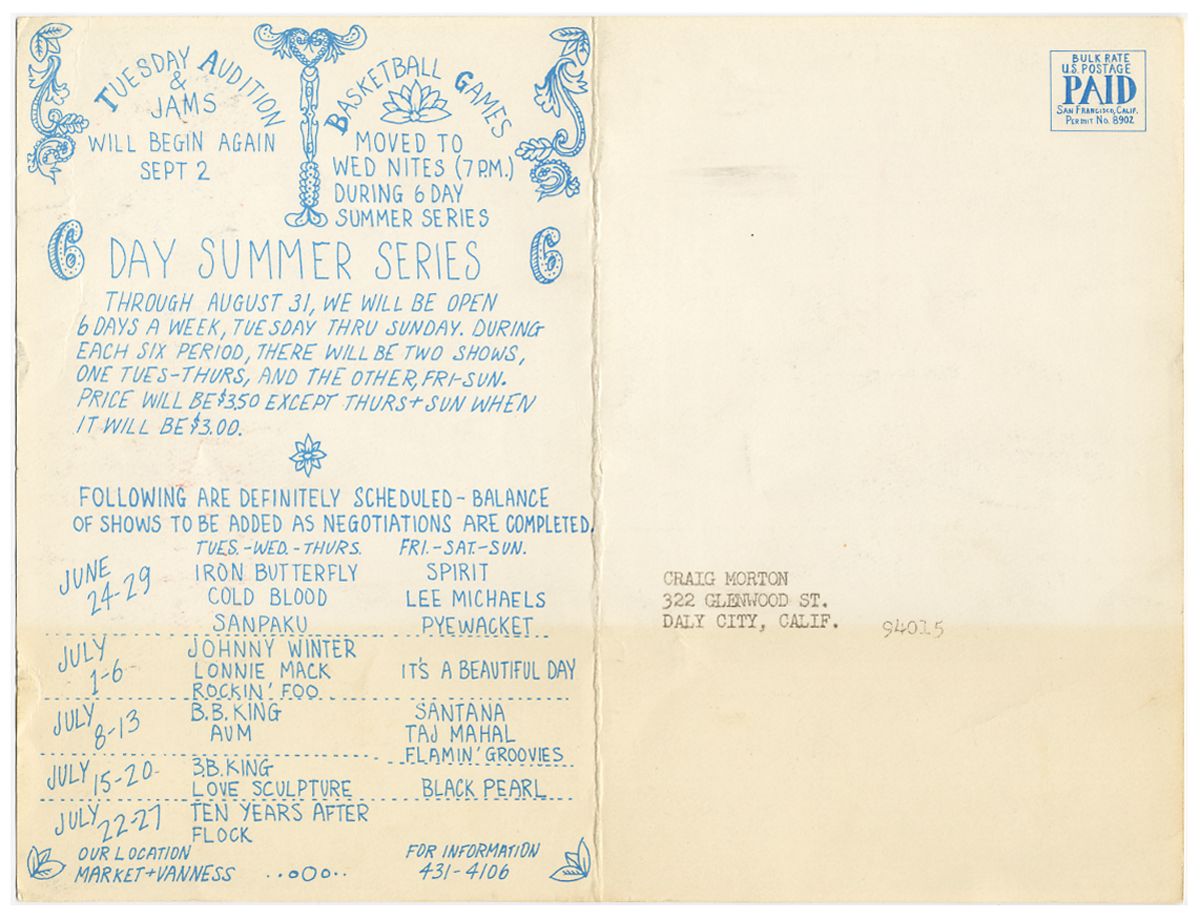 TUESDAY AUDITION
&
JAMS
WILL BEGIN AGAIN
SEPT 2
BASKETBALL GAMES
MOVED TO
WED NITES (7 P.M.)
DURING 6 DAY
SUMMER SERIES
6 DAY SUMMER SERIES 6
THROUGH AUGUST 31, WE WILL BE OPEN
6 DAYS A WEEK, TUESDAY THRU SUNDAY. DURING
EACH SIX PERIOD, THERE WILL BE TWO SHOWS,
ONE TUES-THURS, AND THE OTHER, FRI-SUN.
PRICE WILL BE $3.50 EXCEPT THURS + SUN WHEN
IT WILL BE $3.00.
FOLLOWING ARE DEFINITELY SCHEDULED - BALANCE
OF SHOWS TO BE ADDED AS NEGOTIATIONS ARE COMPLETED.
TUES.-WED.-THURS. FRI.-SAT.-SUN.
JUNE 24-29
IRON BUTTERFLY SPIRIT
COLD BLOOD LEE MICHAELS
SANPAKU PYEWACKET
JULY 1-6
JOHNNY WINTER
LONNIE MACK IT'S A BEAUTIFUL DAY
ROCKIN' FOO
JULY 8-13
B.B. KING SANTANA
AUM TAJ MAHAL
FLAMIN' GROOVIES
JULY 15-20
B.B. KING
LOVE SCULPTURE BLACK PEARL
JULY 22-27
TEN YEARS AFTER
FLOCK
OUR LOCATION
MARKET + VANNESS
FOR INFORMATION
431-4106
BULK RATE
U.S. POSTAGE
PAID
SAN FRANCISCO, CALIF.
PERMIT NO. 8902
CRAIG MORTON
322 GLENWOOD ST.
DALY CITY, CALIF. 94015